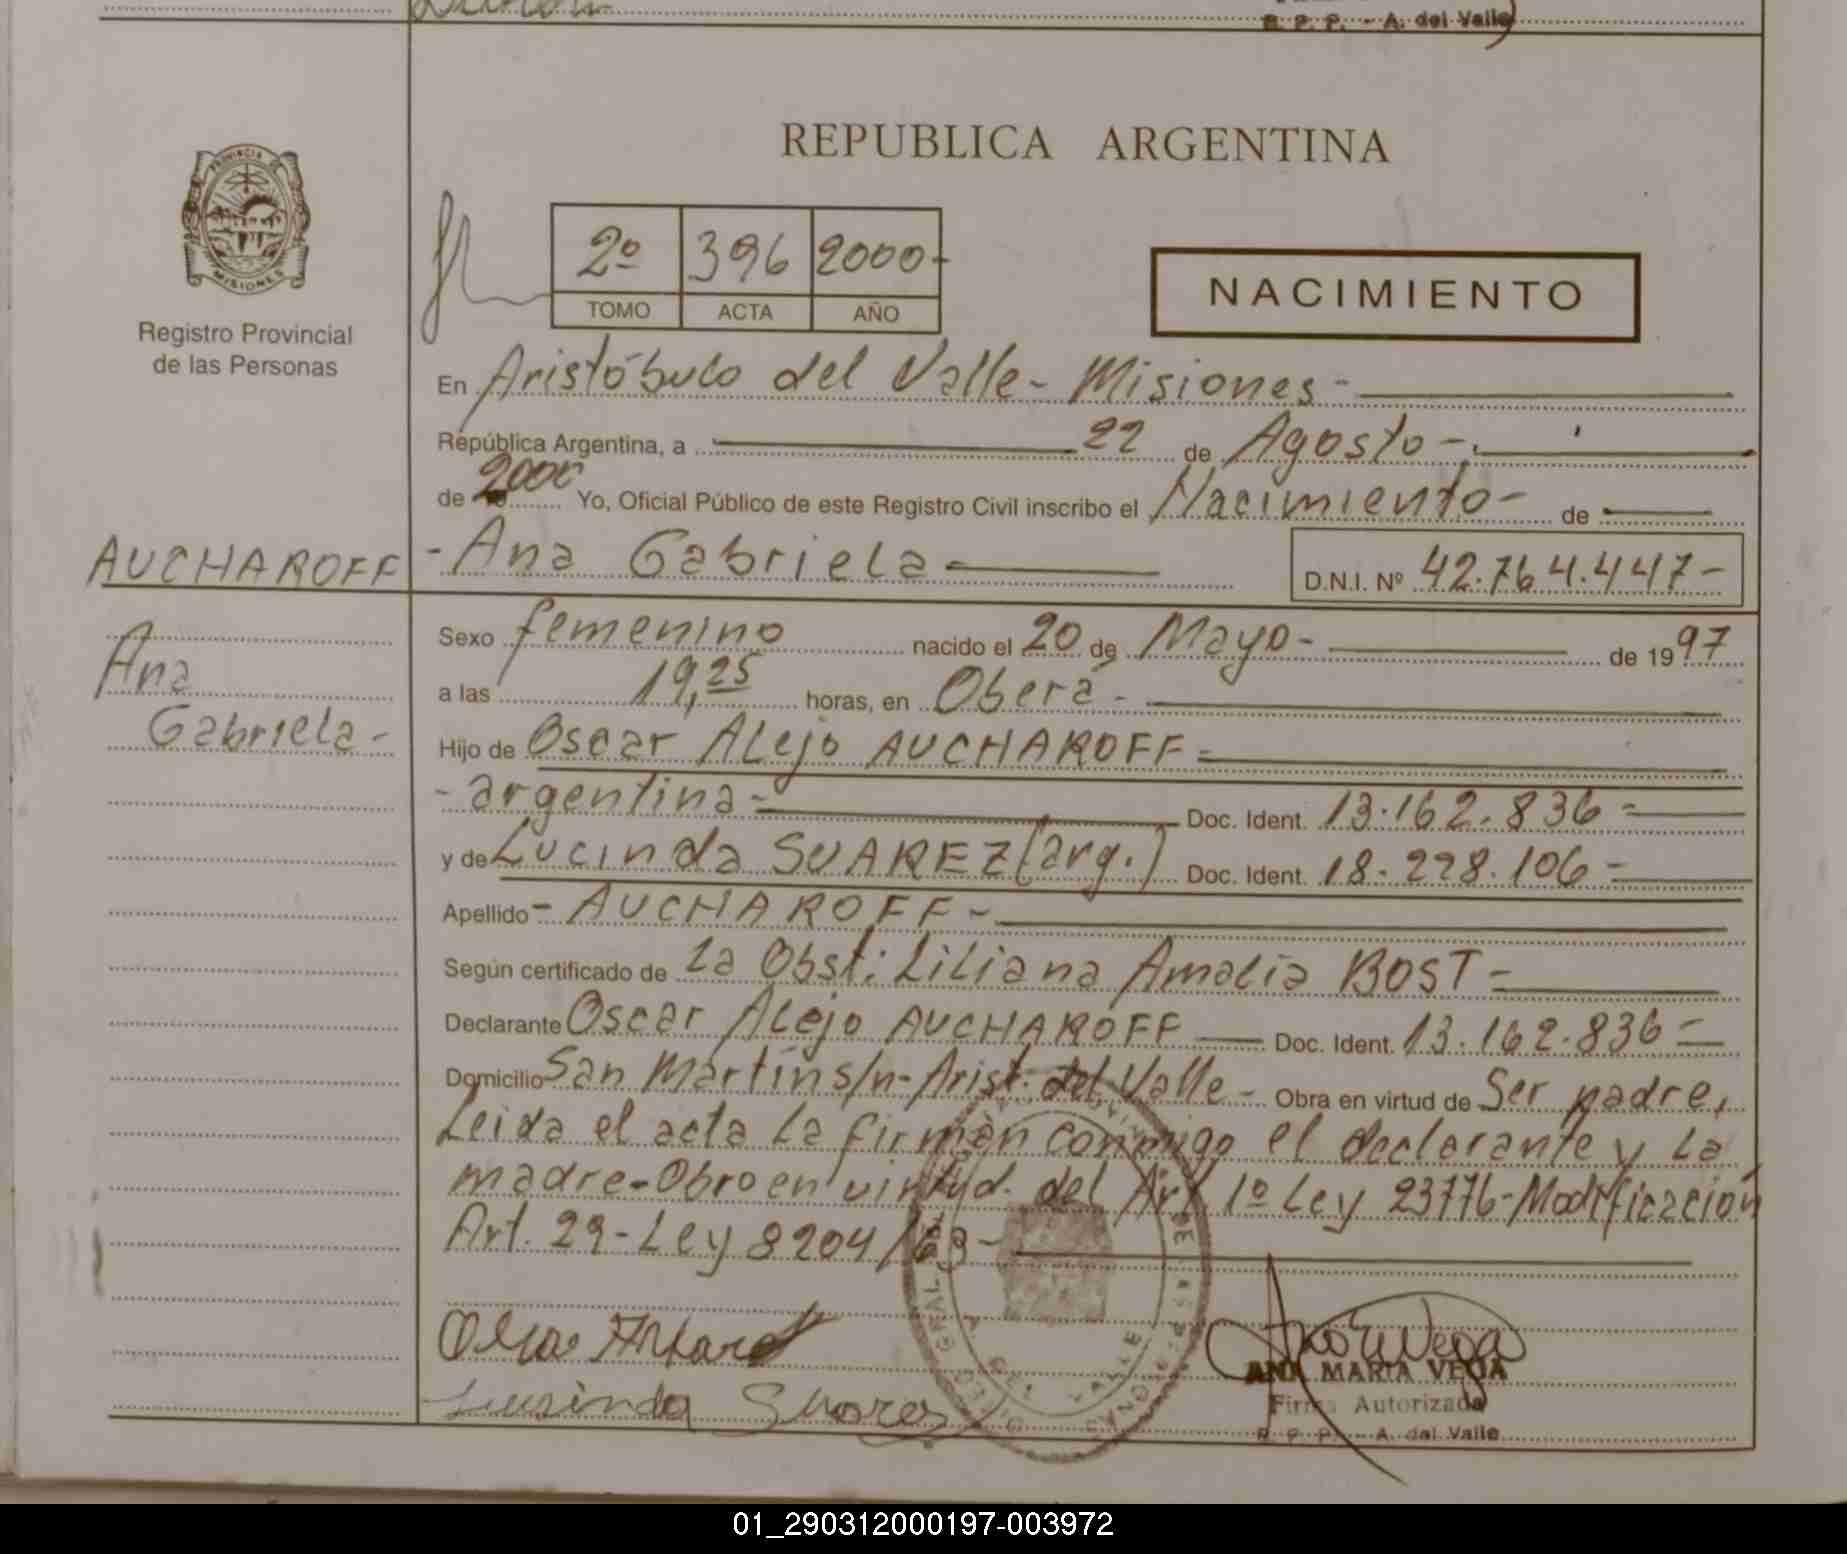 R. P. P. - A. del Valle
REPUBLICA ARGENTINA
PROVINCIA DE
MISIONES
Registro Provincial
de las Personas
2º 396 2000-
TOMO ACTA AÑO
NACIMIENTO
En Aristóbulo del Valle- Misiones-
República Argentina, a 22 de Agosto-
de 2000 Yo, Oficial Público de este Registro Civil inscribo el Nacimiento- de
AUCHAROFF - Ana Gabriela D.N.I. Nº 42.764.447-
Ana
Gabriela-
Sexo femenino nacido el 20 de Mayo- de 1997
a las 19,25 horas, en Oberá-
Hijo de Oscar Alejo AUCHAROFF-
- argentina- Doc. Ident. 13.162.836-
y de Lucinda SUAREZ (arg.) Doc. Ident. 18.228.106-
Apellido- AUCHAROFF-
Según certificado de La Obst: Liliana Amalia BOST-
Declarante Oscar Alejo AUCHAROFF Doc. Ident. 13.162.836-
Domicilio San Martín s/n- Arist. del Valle- Obra en virtud de Ser padre,
Leida el acta la firman conmigo el declarante y la
madre-Obro en virtud del Art 1º Ley 23776-Modificación
Art. 29-Ley 8204/63-
Lucinda Suarez
ANA MARIA VEGA
Firma Autorizada
R. P. P. - A. del Valle
01_290312000197-003972